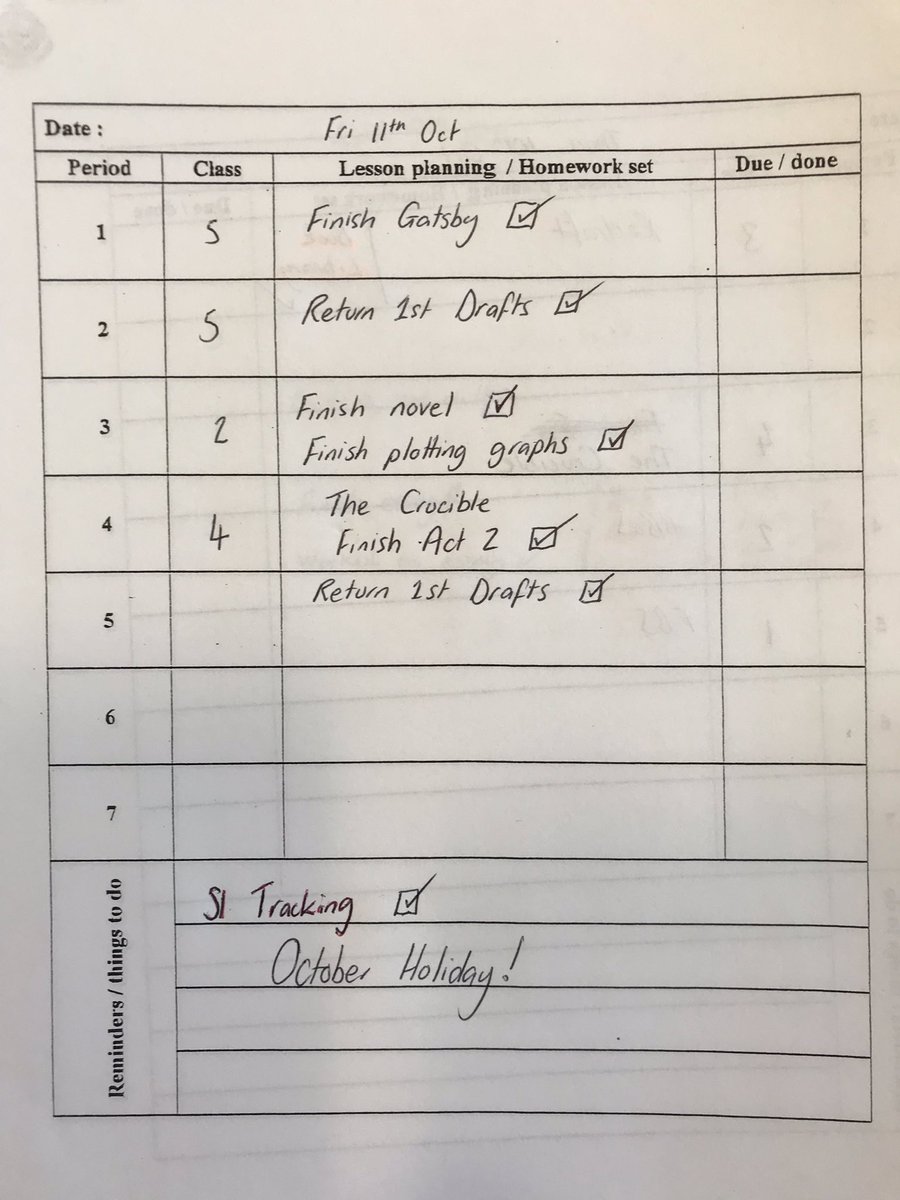 Date : Fri 11th Oct
Period Class Lesson planning / Homework set Due / done
1 5 Finish Gatsby ☑
2 5 Return 1st Drafts ☑
3 2 Finish novel ☑
Finish plotting graphs ☑
4 4 The Crucible
Finish Act 2 ☑
5 Return 1st Drafts ☑
6
7
Reminders / things to do
S1 Tracking ☑
October Holiday!